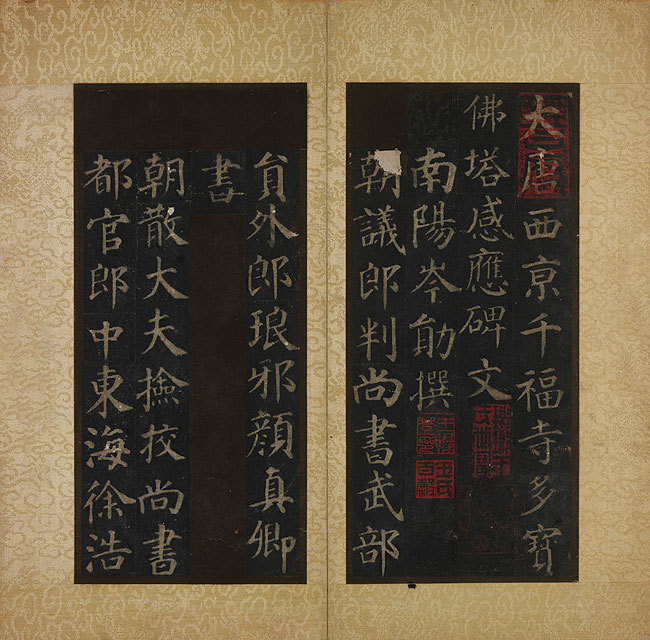 大唐西京千福寺多寶
佛塔感應碑文
南陽岑勛撰
朝議郎判尚書武部
貟外郎琅邪顏真卿
書
朝散大夫撿校尚書
都官郎中東海徐浩